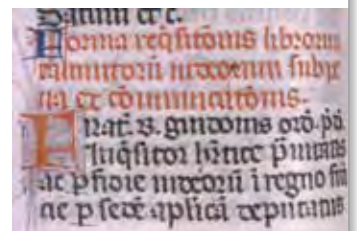 Datum et c.
Forma reqͥsitoīs libroru
talmutorū iudeorum subp̄
na excōmunicatiōis.
Frat̄. B. guidonis ord. p̄d.
Inqͥsitor hēticē p̄uitatis
ac ꝑfidie iudeorū ī regno frā
cie ꝑ sedē apl̄icā deputatus